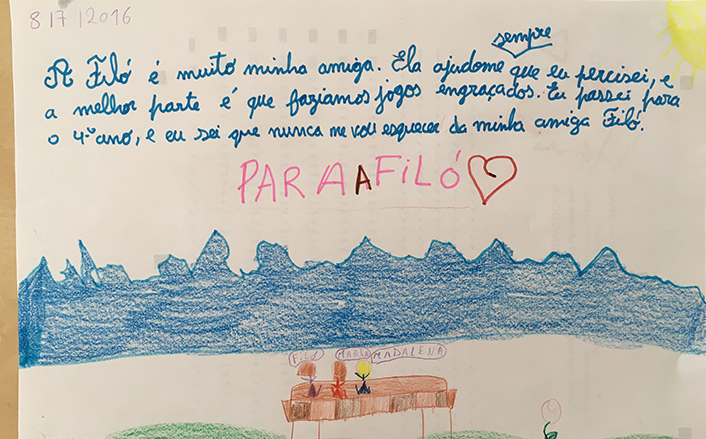 8/7/2016
sempre
A Filó é muito minha amiga. Ela ajudome que eu percisei, e
a melhor parte é que faziamos jogos engraçados. Eu passei para
o 4.º ano, e eu sei que nunca me vou esquecer da minha amiga Filó.
PARA A FiLÓ
FiLÓ MARIA MADALENA